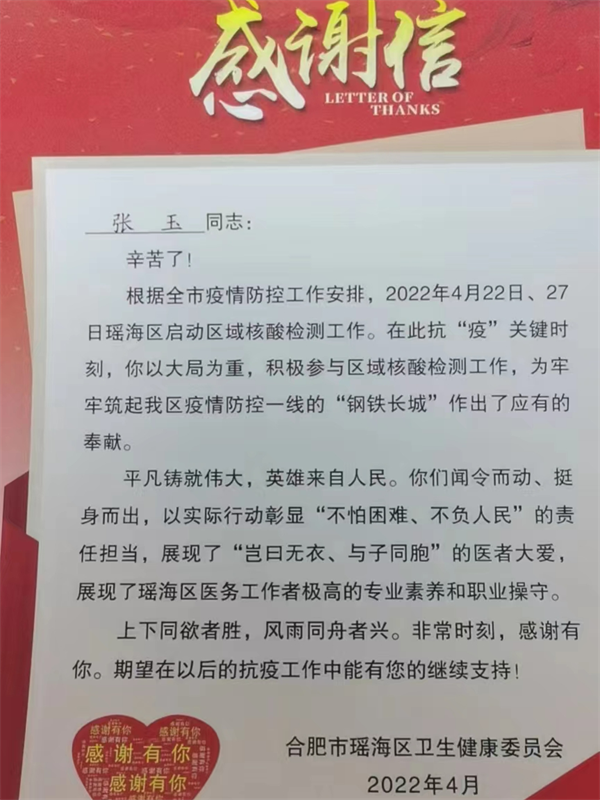 感谢信
LETTER OF
THANKS
张 玉 同志：
辛苦了！
根据全市疫情防控工作安排，2022年4月22日、27
日瑶海区启动区域核酸检测工作。在此抗“疫”关键时
刻，你以大局为重，积极参与区域核酸检测工作，为牢
牢筑起我区疫情防控一线的“钢铁长城”作出了应有的
奉献。
平凡铸就伟大，英雄来自人民。你们闻令而动、挺
身而出，以实际行动彰显“不怕困难、不负人民”的责
任担当，展现了“岂曰无衣、与子同胞”的医者大爱，
展现了瑶海区医务工作者极高的专业素养和职业操守。
上下同欲者胜，风雨同舟者兴。非常时刻，感谢有
你。期望在以后的抗疫工作中能有您的继续支持！
感谢有你 感谢有你
感谢有你
感谢有你
合肥市瑶海区卫生健康委员会
2022年4月